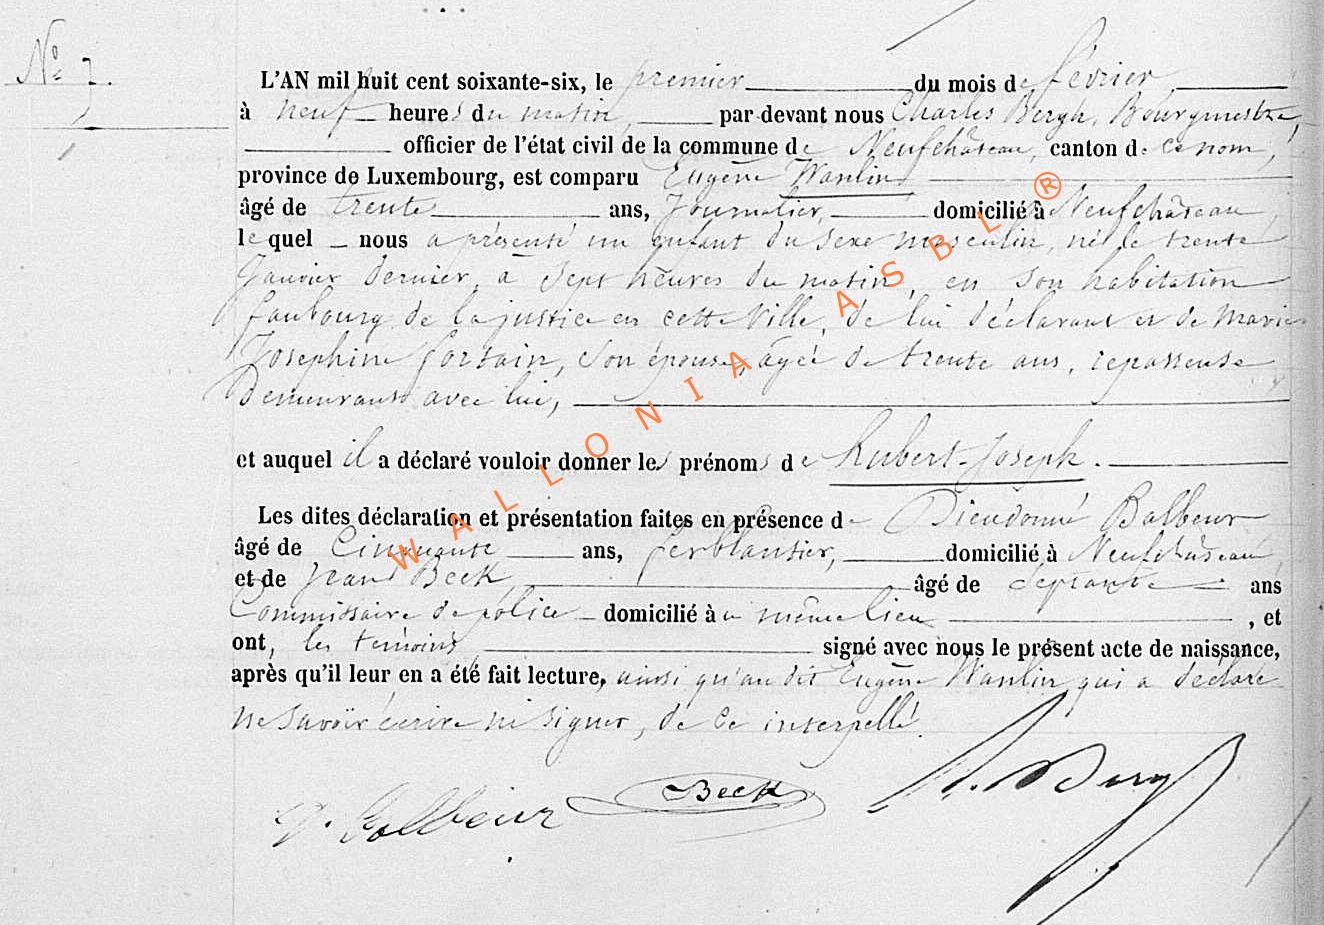 N° 7.
L'AN mil huit cent soixante-six, le premier du mois de février
à neuf heures du matin, par devant nous Charles Bergh, Bourgmestre,
officier de l'état civil de la commune de Neufchâteau, canton de ce nom,
province de Luxembourg, est comparu Eugène Wanlin
âgé de trente ans, Journalier, domicilié à Neufchâteau,
lequel nous a présenté un enfant du sexe masculin, né le trente
Janvier dernier, à sept heures du matin, en son habitation
faubourg de la justice en cette Ville, de lui déclarant et de Marie
Josephine, son épouse, âgée de trente ans, repasseuse
Demeurant avec lui,
et auquel il a déclaré vouloir donner les prénoms de Hubert-Joseph.
Les dites déclaration et présentation faites en présence de Dieudonné Balbeur
âgé de Cinquante ans, ferblantier, domicilié à Neufchâteau
et de Jean Beck âgé de Septante ans
Commissaire de police domicilié au même lieu, et
ont, les témoins, signé avec nous le présent acte de naissance,
après qu'il leur en a été fait lecture, ainsi qu'au dit Eugène Wanlin qui a déclaré
ne savoir écrire ni signer, de ce interpellé.
D. Balbeur Beck
WALLONIA ASBL ®